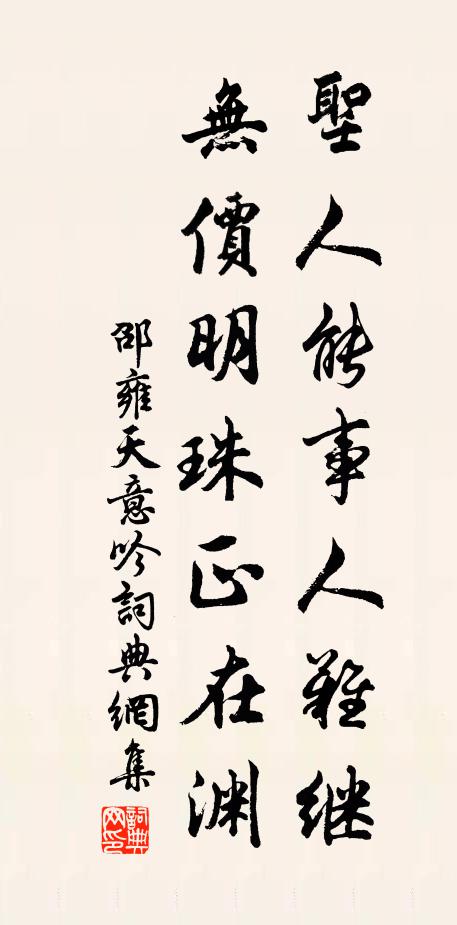 聖人能事人難继
無價明珠正在渊
邵雍天意吟詞典網集
詞典
网印